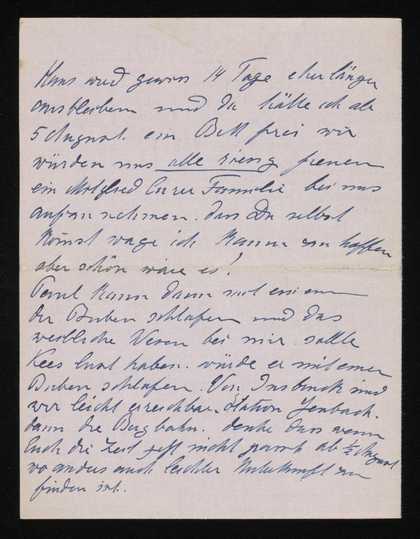 Hans wird gewiss 14 Tage eher länger
ausbleiben und da hätte ich ab
5 August ein Bett frei wir
würden uns alle riesig freuen
ein Mitglied Eurer Familie bei uns
aufzunehmen. dass Du selbst
kömst wage ich kaum zu hoffen
aber schön wäre es!
kann dann mit einem
der Buben schlafen und das
weibliche Wesen bei mir sollte
Kees Lust haben. würde er mit einer
Buben schlafen. Von Insbruck sind
wir leicht erreichbar. Station Jenbach.
dann die Bergbahn. denke dass wenn
Euch die Zeit jetzt nicht passt ab ½ August
wo anders auch leichter Unterkunft zu
finden ist.